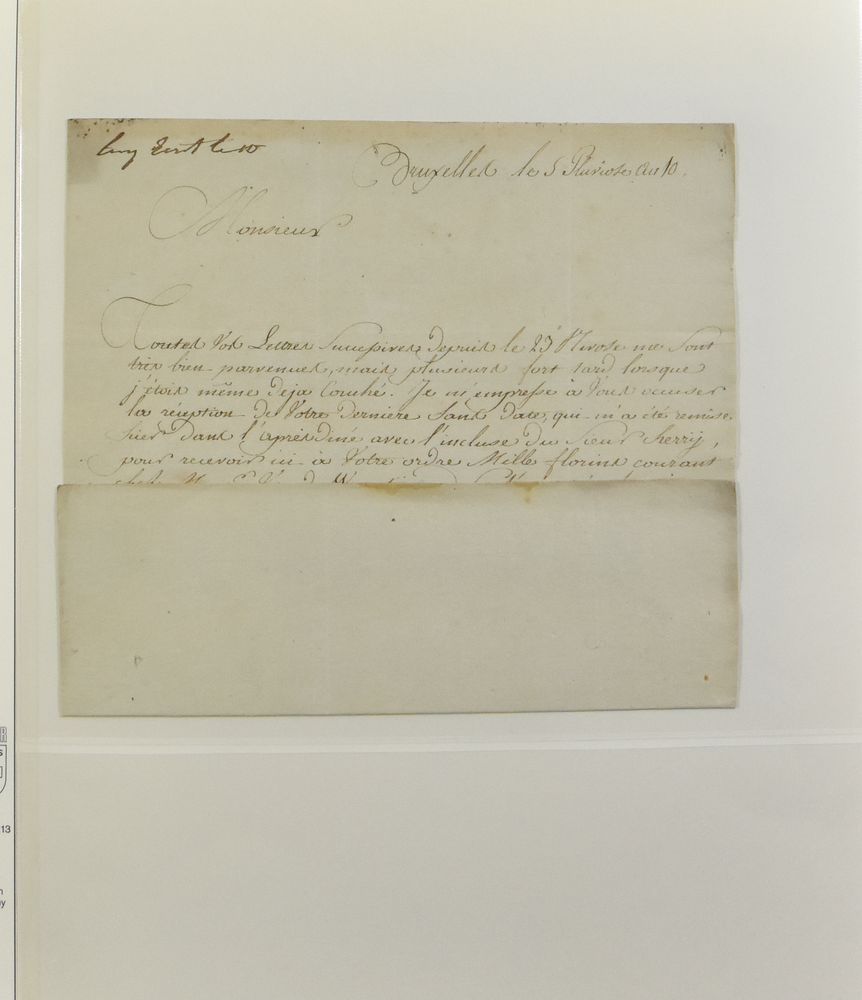 Bruxelles le 5 Pluviose an 10.
Monsieur
Toutes Vos Lettres Successives Depuis le 23 Nivose me Sont
très bien parvenues, mais plusieurs fort tard, lorsque
j'étois même Deja Couché. Je m'empresse à Vous accuser
la réception De Votre Derniere Sans Date, qui m'a été remise
hier Dans l'après Diné avec l'incluse Du Sieur Cherrÿ,
pour recevoir ici à Votre ordre Mille florins courant
13